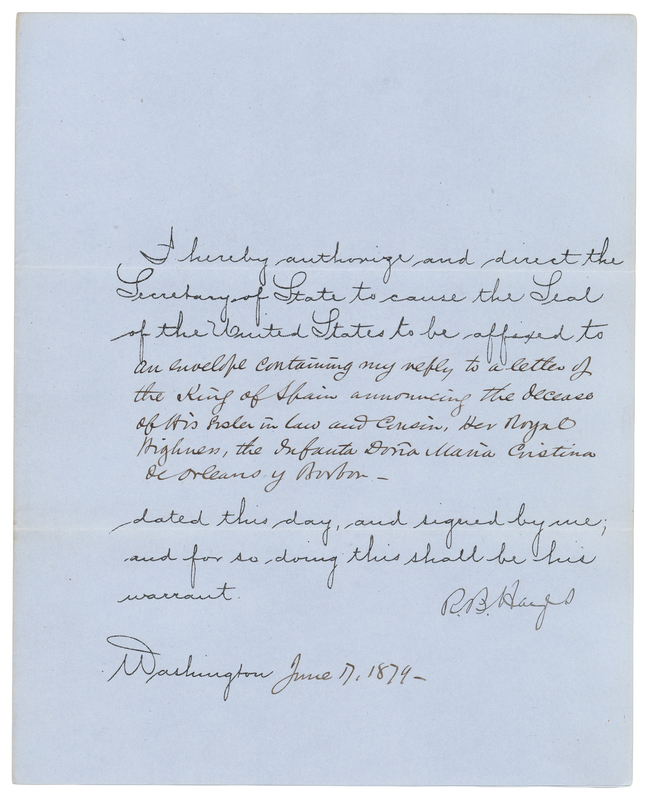 I hereby authorize and direct the
Secretary of State to cause the Seal
of the United States to be affixed to
an envelope containing my reply to a letter of
the King of Spain announcing the decease
of His Sister in law and Cousin, Her Royal
Highness, the Infanta Doña Maria Cristina
de Orleans y Borbon –
dated this day, and signed by me;
and for so doing this shall be his
warrant.
R. B. Hayes
Washington June 17, 1879 –